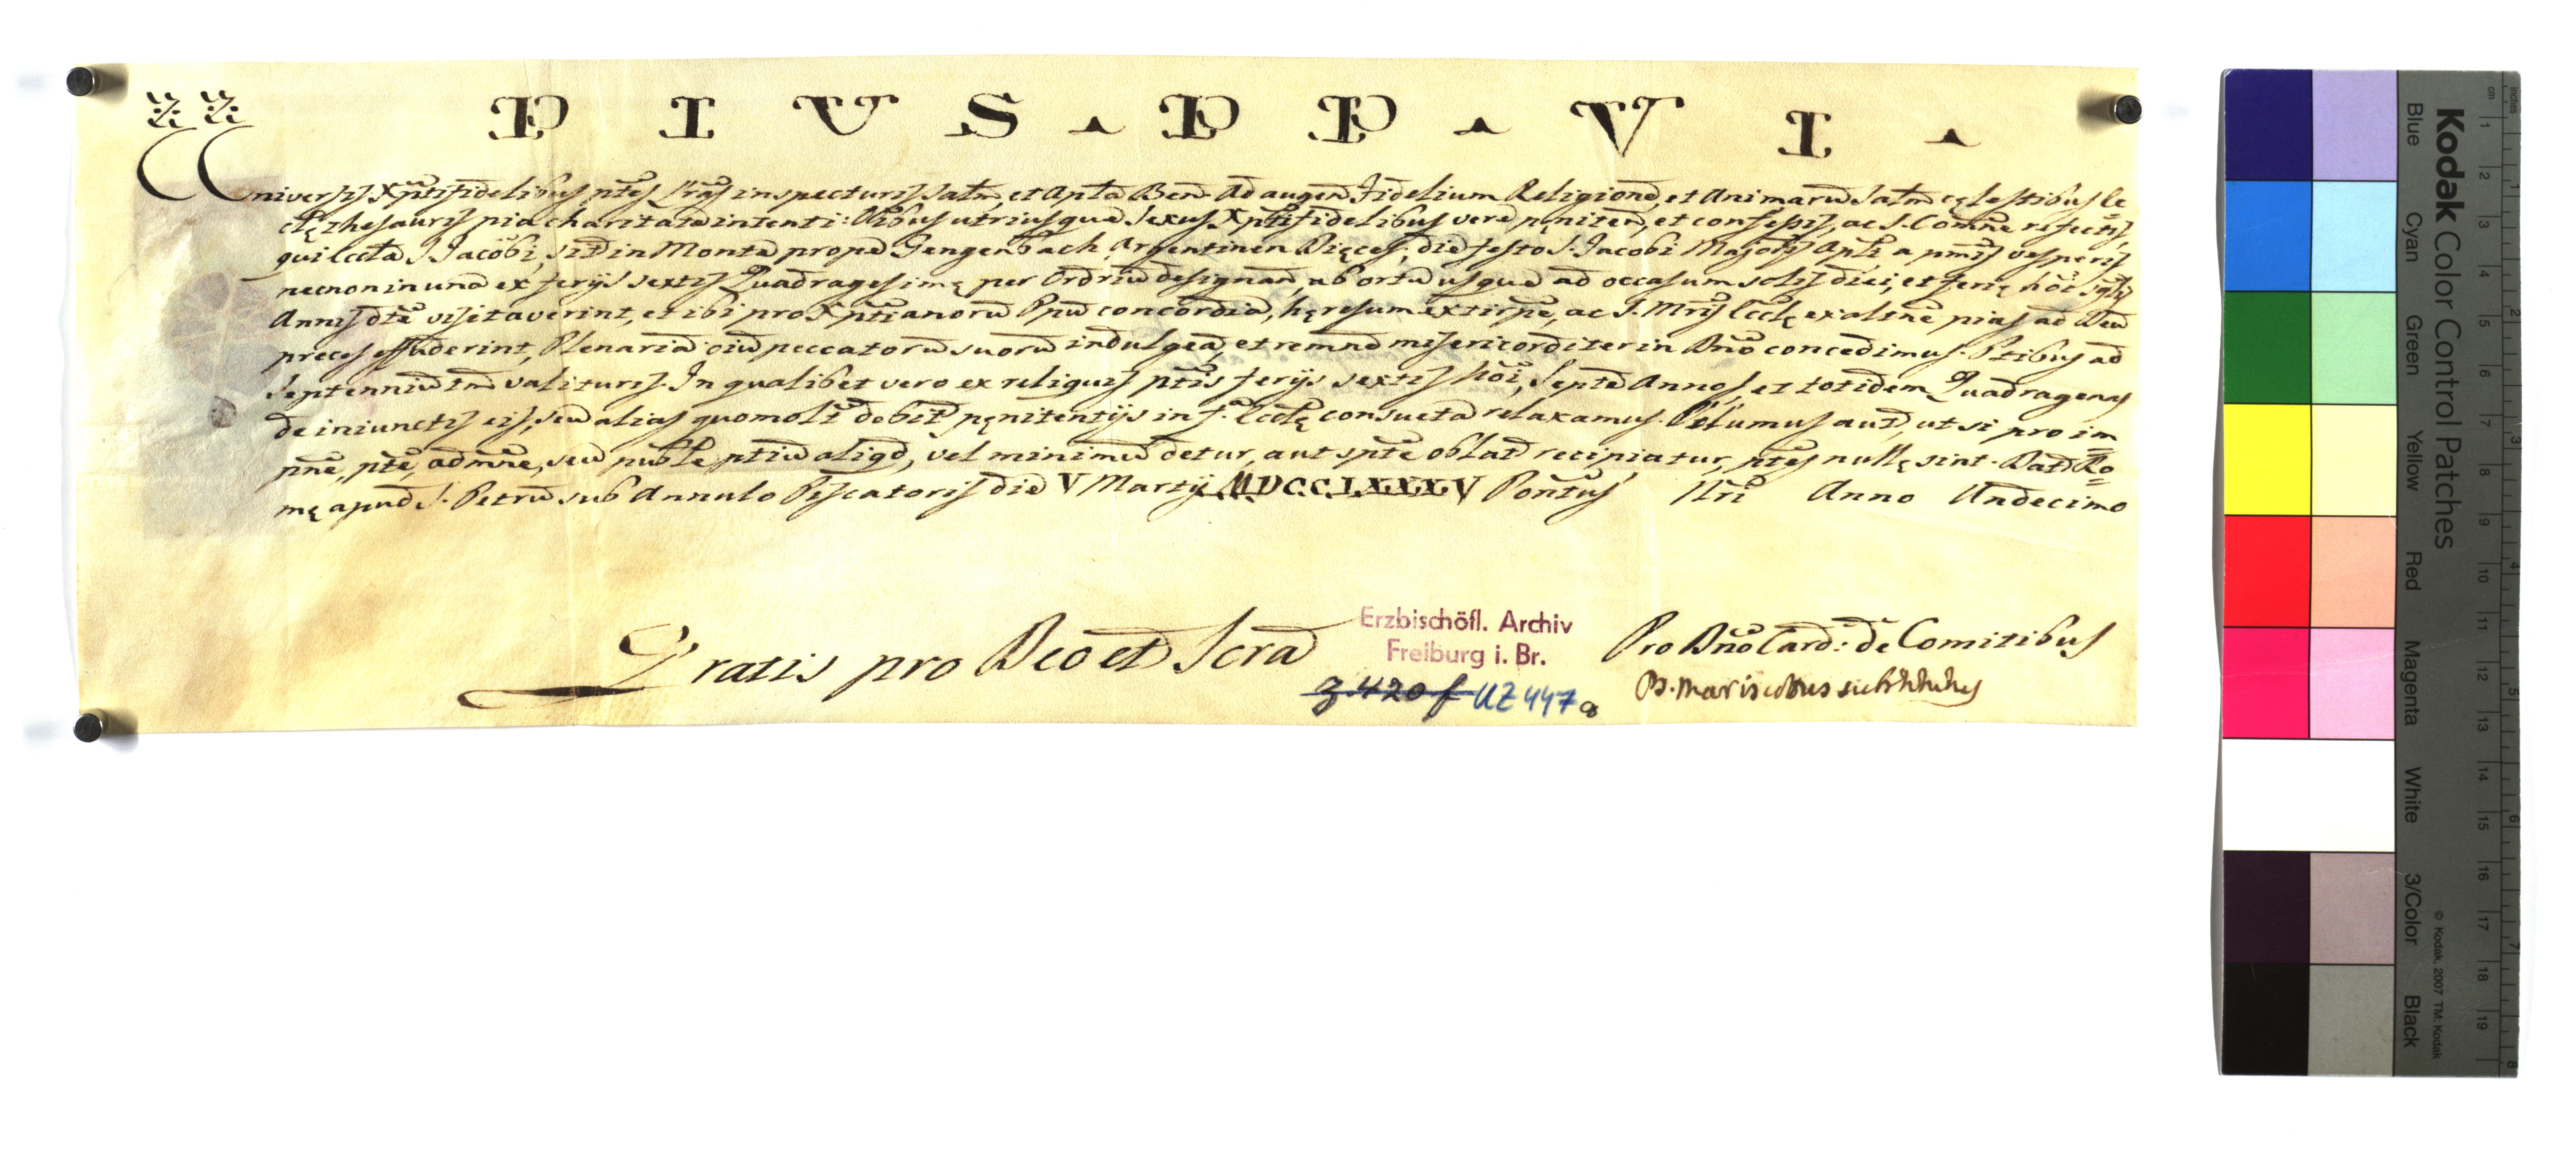 PIUS . PP . VI .
Universis Xpti fidelibus pñtes Lr̃as inspecturis Saltm̃, et Apl̃ca Ben. Ad augen Fidelium Religione, et Animaru Saltm̃ cęlestibus Ec
clę thesauris pia charitate intenti: Oibus utriusque Sexus Xpti fidelibus vere pęniten, et confessis, ac S. Comñe refectis,
qui Eccl̃a S. Jacobi, sit in Monte prope Gengenbach Argentinen Dięces, die festo S. Jacobi Majoris Apl̃i a pm̃is vesperis
necnon in una ex ferijs sextis Quadragesimę per Ordriu designan, ab ortu usque ad occasum solis diei, et ferię hõi sglis
Annis dte visitaverint, et ibi pro Xptianoru Ppu concordia, hęresum extirpe, ac S. Mris Eccl̃ę exaltne pias ad Deu
preces effuderint, Plenaria oiu peccatoru suoru indulgea, et remne misericorditer in Dño concedimus. Pñtibus ad
Septenniu tm valituris. In qualibet vero ex reliquis pttis ferijs sextis hõi, Septe Annos, et totidem Quadragenas
de iniunctis eis, seu alias quomolt debit pęnitentijs in f. Eccl̃ę consueta relaxamus. Volumus aut, ut si pro im
pñe, pñte, admne, seu puble ptiu aligd, vel minimu detur, aut spte oblat recipiatur, pñtes nullę sint. Dat Ro
mę apud S. Petru sub Annulo Piscatoris die V Martij MDCCLXXXV Pontus Nri Anno Undecimo
Gratis pro Deo et Scra
Erzbischöfl. Archiv
Freiburg i. Br.
3 420 f UZ 447a
Pro Dño Card: de Comitibus
Kodak Color Control Patches
Blue Cyan Green Yellow Red Magenta White 3/Color Black
© Kodak, 2007 TM: Kodak
cm 1 2 3 4 5 6 7 8 9 10 11 12 13 14 15 16 17 18 19
inches 1 2 3 4 5 6 7 8